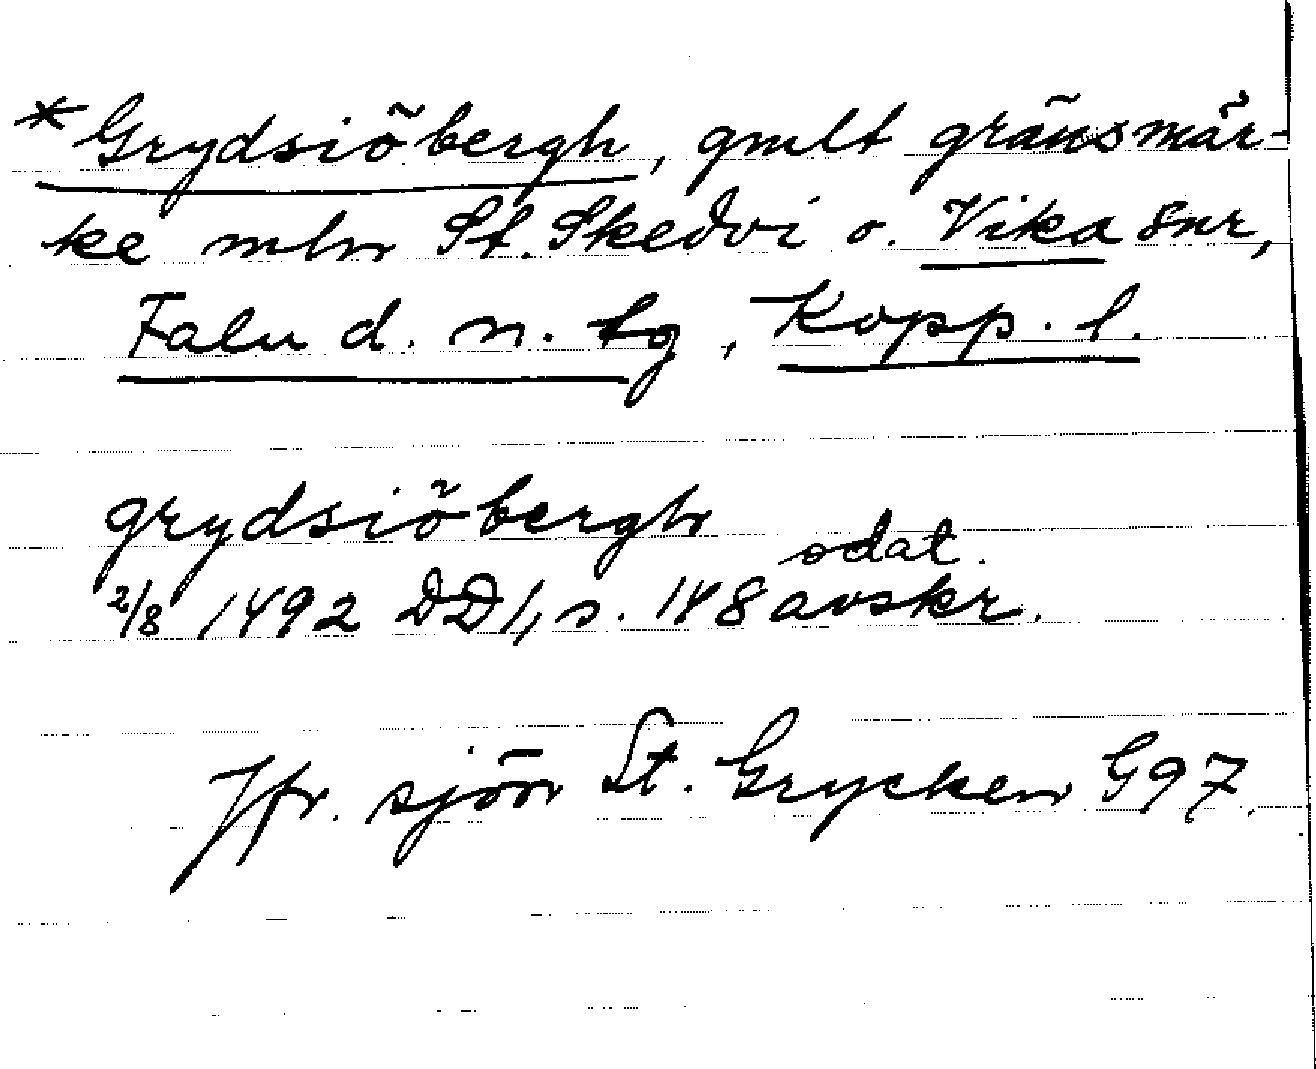 *Grydsiöbergh, gmlt gränsmär-
ke mln St. Skedvi o. Vika snr,
Falu d. n. tg, Kopp. l.
grydsiöbergh
odat.
2/8 1492 DD 1, s. 148 avskr.
Jfr. sjön St. Grycken G97.